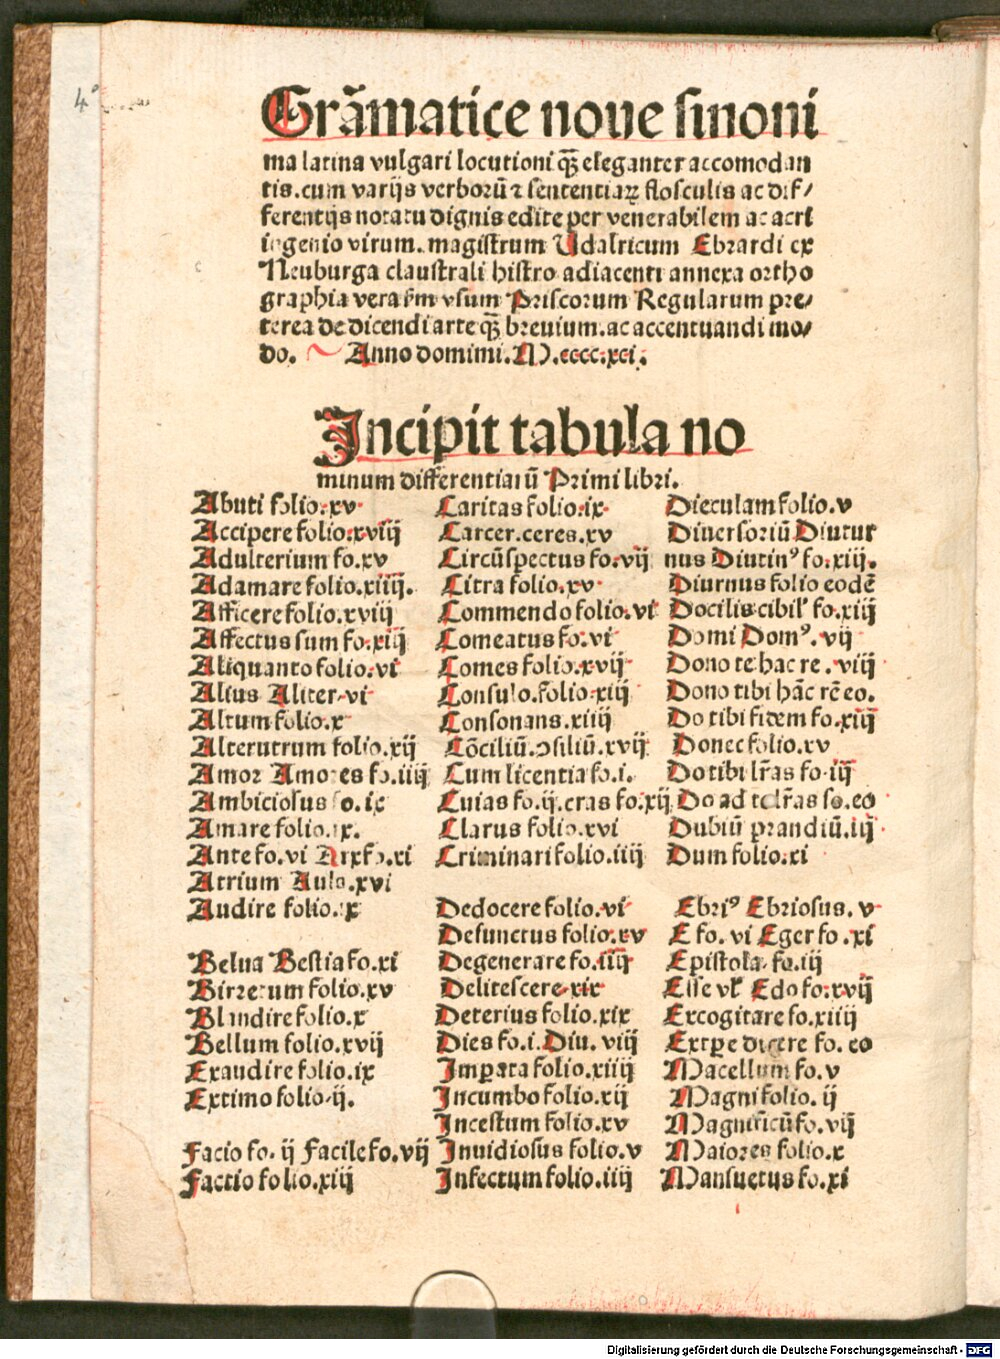 4°
Grãmatice noue sinoni
ma latina vulgari locutioni qȝ eleganter accomodan
tis. cum varijs verborũ ⁊ sententiaꝝ flosculis ac dif/
ferentijs notatu dignis edite per venerabilem ac acri
ingenio virum. magistrum Udalricum Ebrardi ex
Neuburga claustrali histro adiacenti annexa ortho
graphia vera s̃m vsum Priscorum Regularum pre/
terea de dicendi arte qȝ breuium. ac accentuandi mo/
do. Anno domini. M.cccc.xci.
Incipit tabula no
minum differentiarũ Primi libri.
Abuti folio.xv
Accipere folio.xviij
Adulterium fo.xv
Adamare folio.xiiij.
Afficere folio.xviij
Affectus sum fo.xiij
Aliquanto folio.vi
Alius Aliter.vi
Altum folio.x
Alterutrum folio.xij
Amor Amores fo.iiij
Ambiciosus fo.ix
Amare folio.ix.
Ante fo.vi Arx fo.xi
Atrium Aula.xvi
Audire folio.ix
Belua Bestia fo.xi
Birretum folio.xv
Blandire folio.x
Bellum folio.xvij
Exaudire folio.ix
Extimo folio.ij.
Facio fo. ij Facile fo.vij
Factio folio.xiij
Caritas folio.ix
Carcer.ceres.xv
Circũspectus fo.vij
Citra folio.xv
Commendo folio.vi
Comeatus fo.vi
Comes folio.xvij
Consulo.folio.xiij
Consonans.xiiij
Cõciliũ.ↄsiliũ.xvij
Cum licentia fo.i.
Cuias fo.ij.cras fo.xij
Clarus folio.xvi
Criminari folio.iiij
Dedocere folio.vi
Defunctus folio.xv
Degenerare fo.iiij
Delitescere.xix
Deterius folio.xix
Dies fo.i.Diu. viij
Impata folio.xiiij
Incumbo folio.xij
Incestum folio.xv
Inuidiosus folio.v
Infectum folio.iiij
Dieculam folio.v
Diuersoriũ Diutur
nus Diutinꝰ fo.xiij.
Diurnus folio eodẽ
Docilis cibil' fo.xiij
Domi Domꝰ. vij
Dono te hac re. viij
Dono tibi hãc rẽ eo.
Do tibi fidem fo.xiij
Donec folio.xv
Do tibi lr̃as fo.iij
Do ad te lr̃as fo.eo
Dubiũ prandiũ.iij
Dum folio.xi
Ebriꝰ Ebriosus. v
E fo. vi Eger fo.xi
Epistola. fo.iij
Esse vl' Edo fo.xvij
Excogitare fo.xiiij
Extpe dicere fo. eo
Macellum fo.v
Magni folio. ij
Magnificũ fo.vij
Maiores folio.x
Mansuetus fo.xi
Digitalisierung gefördert durch die Deutsche Forschungsgemeinschaft - DFG